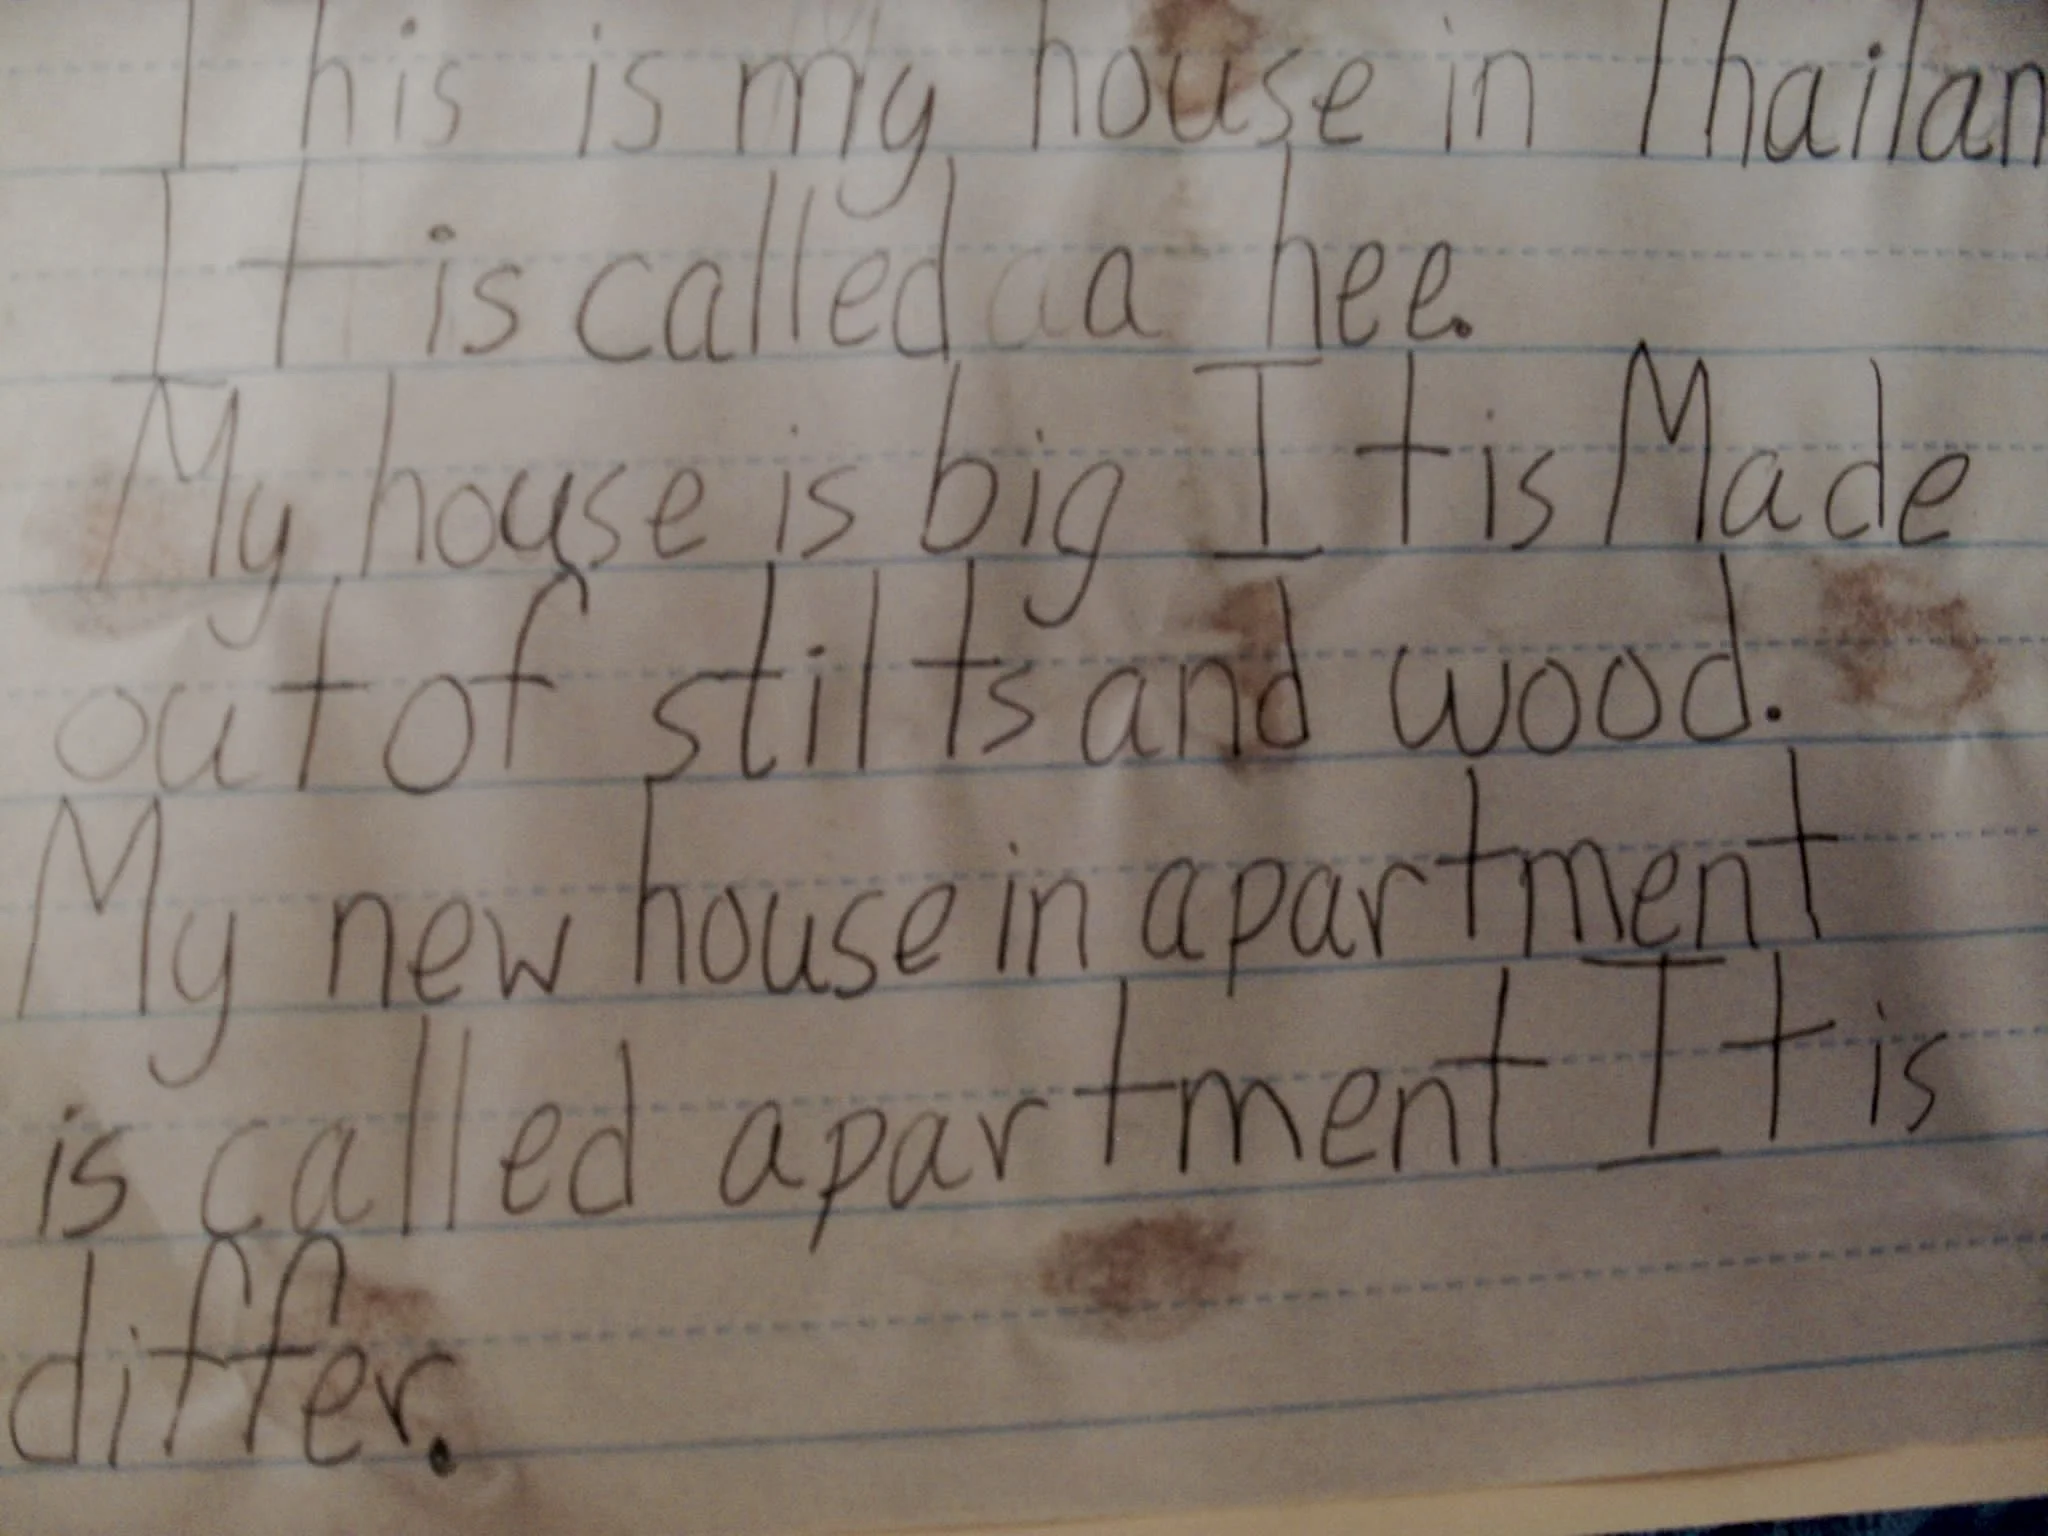 This is my house in Thailan
It is called a hee.
My house is big It is Made
out of stilts and wood.
My new house in apartment
is called apartment It is
differ.